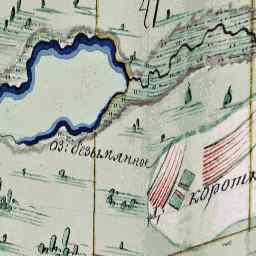 41
оз: безымянное
коротк